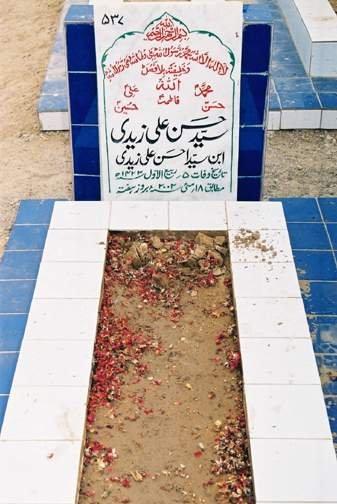 ۵۳۷
الله
بسم الله الرحمن الرحيم
لا اله الا الله محمد رسول الله علی ولی الله
الله
محمد علی
فاطمہ
حسن حسین
سید حسن علی زیدی
ابن سید احسن علی زیدی
تاریخ وفات ۵ ربیع الاول ۱۴۲۳ھ
مطابق ۱۸ مئی ۲۰۰۲ء بروز ہفتہ